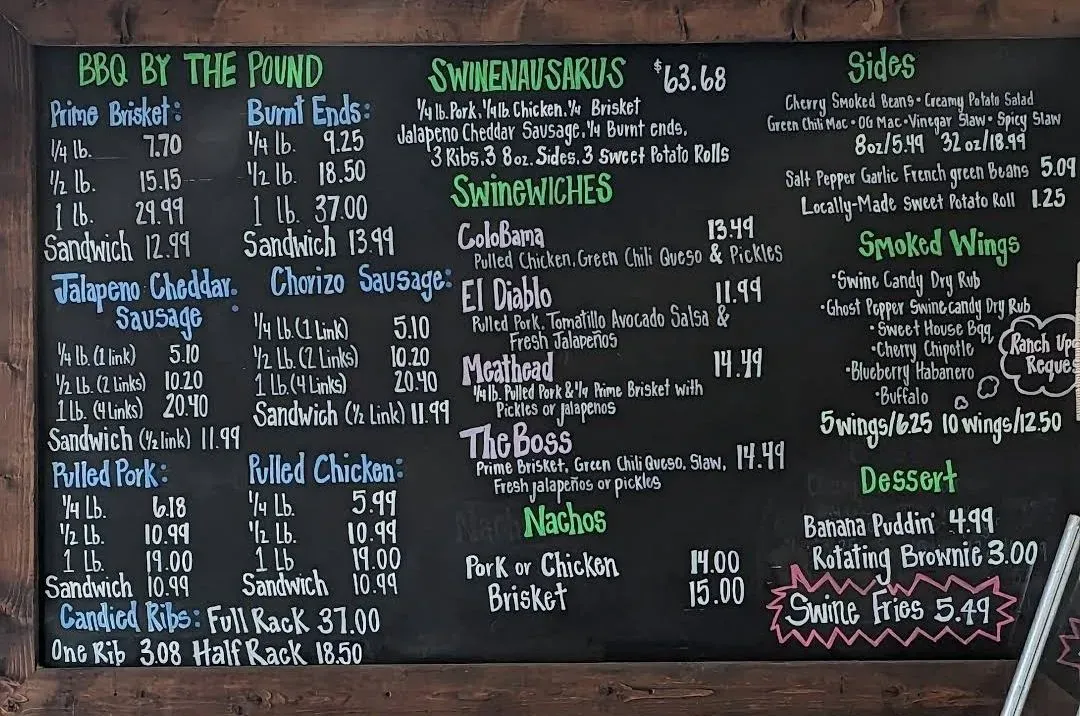 BBQ BY THE POUND
Prime Brisket:
1/4 lb. 7.70
1/2 lb. 15.15
1 lb. 29.99
Sandwich 12.99
Burnt Ends:
1/4 lb. 9.25
1/2 lb. 18.50
1 lb. 37.00
Sandwich 13.99
Jalapeno Cheddar
Sausage :
1/4 lb. (1 link) 5.10
1/2 Lb. (2 Links) 10.20
1 Lb. (4 Links) 20.40
Sandwich (1/2 link) 11.99
Chorizo Sausage:
1/4 lb. (1 Link) 5.10
1/2 Lb. (2 Links) 10.20
1 Lb. (4 Links) 20.40
Sandwich (1/2 Link) 11.99
Pulled Pork:
1/4 Lb. 6.18
1/2 Lb. 10.99
1 Lb. 19.00
Sandwich 10.99
Pulled Chicken:
1/4 Lb. 5.99
1/2 Lb. 10.99
1 Lb 19.00
Sandwich 10.99
Candied Ribs: Full Rack 37.00
One Rib 3.08 Half Rack 18.50
SWINENAUSARUS $63.68
1/4 lb. Pork, 1/4 lb Chicken, 1/4 Brisket
Jalapeno Cheddar Sausage, 1/4 Burnt ends,
3 Ribs, 3 8oz. Sides, 3 Sweet Potato Rolls
SWINEWICHES
ColoBama 13.49
Pulled Chicken, Green Chili Queso & Pickles
El Diablo 11.99
Pulled Pork, Tomatillo Avocado Salsa &
Fresh Jalapeños
Meathead 14.49
1/4 lb. Pulled Pork & 1/4 Prime Brisket with
Pickles or jalapenos
The Boss 14.49
Prime Brisket, Green Chili Queso, Slaw,
Fresh jalapeños or pickles
Nachos
Pork or Chicken 14.00
Brisket 15.00
Sides
Cherry Smoked Beans • Creamy Potato Salad
Green Chili Mac • OG Mac • Vinegar Slaw • Spicy Slaw
8oz/5.99 32 oz/18.99
Salt Pepper Garlic French green Beans 5.09
Locally-Made Sweet Potato Roll 1.25
Smoked Wings
•Swine Candy Dry Rub
•Ghost Pepper Swinecandy Dry Rub
•Sweet House Bqq
•Cherry Chipotle
•Blueberry Habanero
•Buffalo
Ranch Upo
Reques
5 wings/6.25 10 wings/12.50
Dessert
Banana Puddin' 4.99
Rotating Brownie 3.00
Swine Fries 5.49